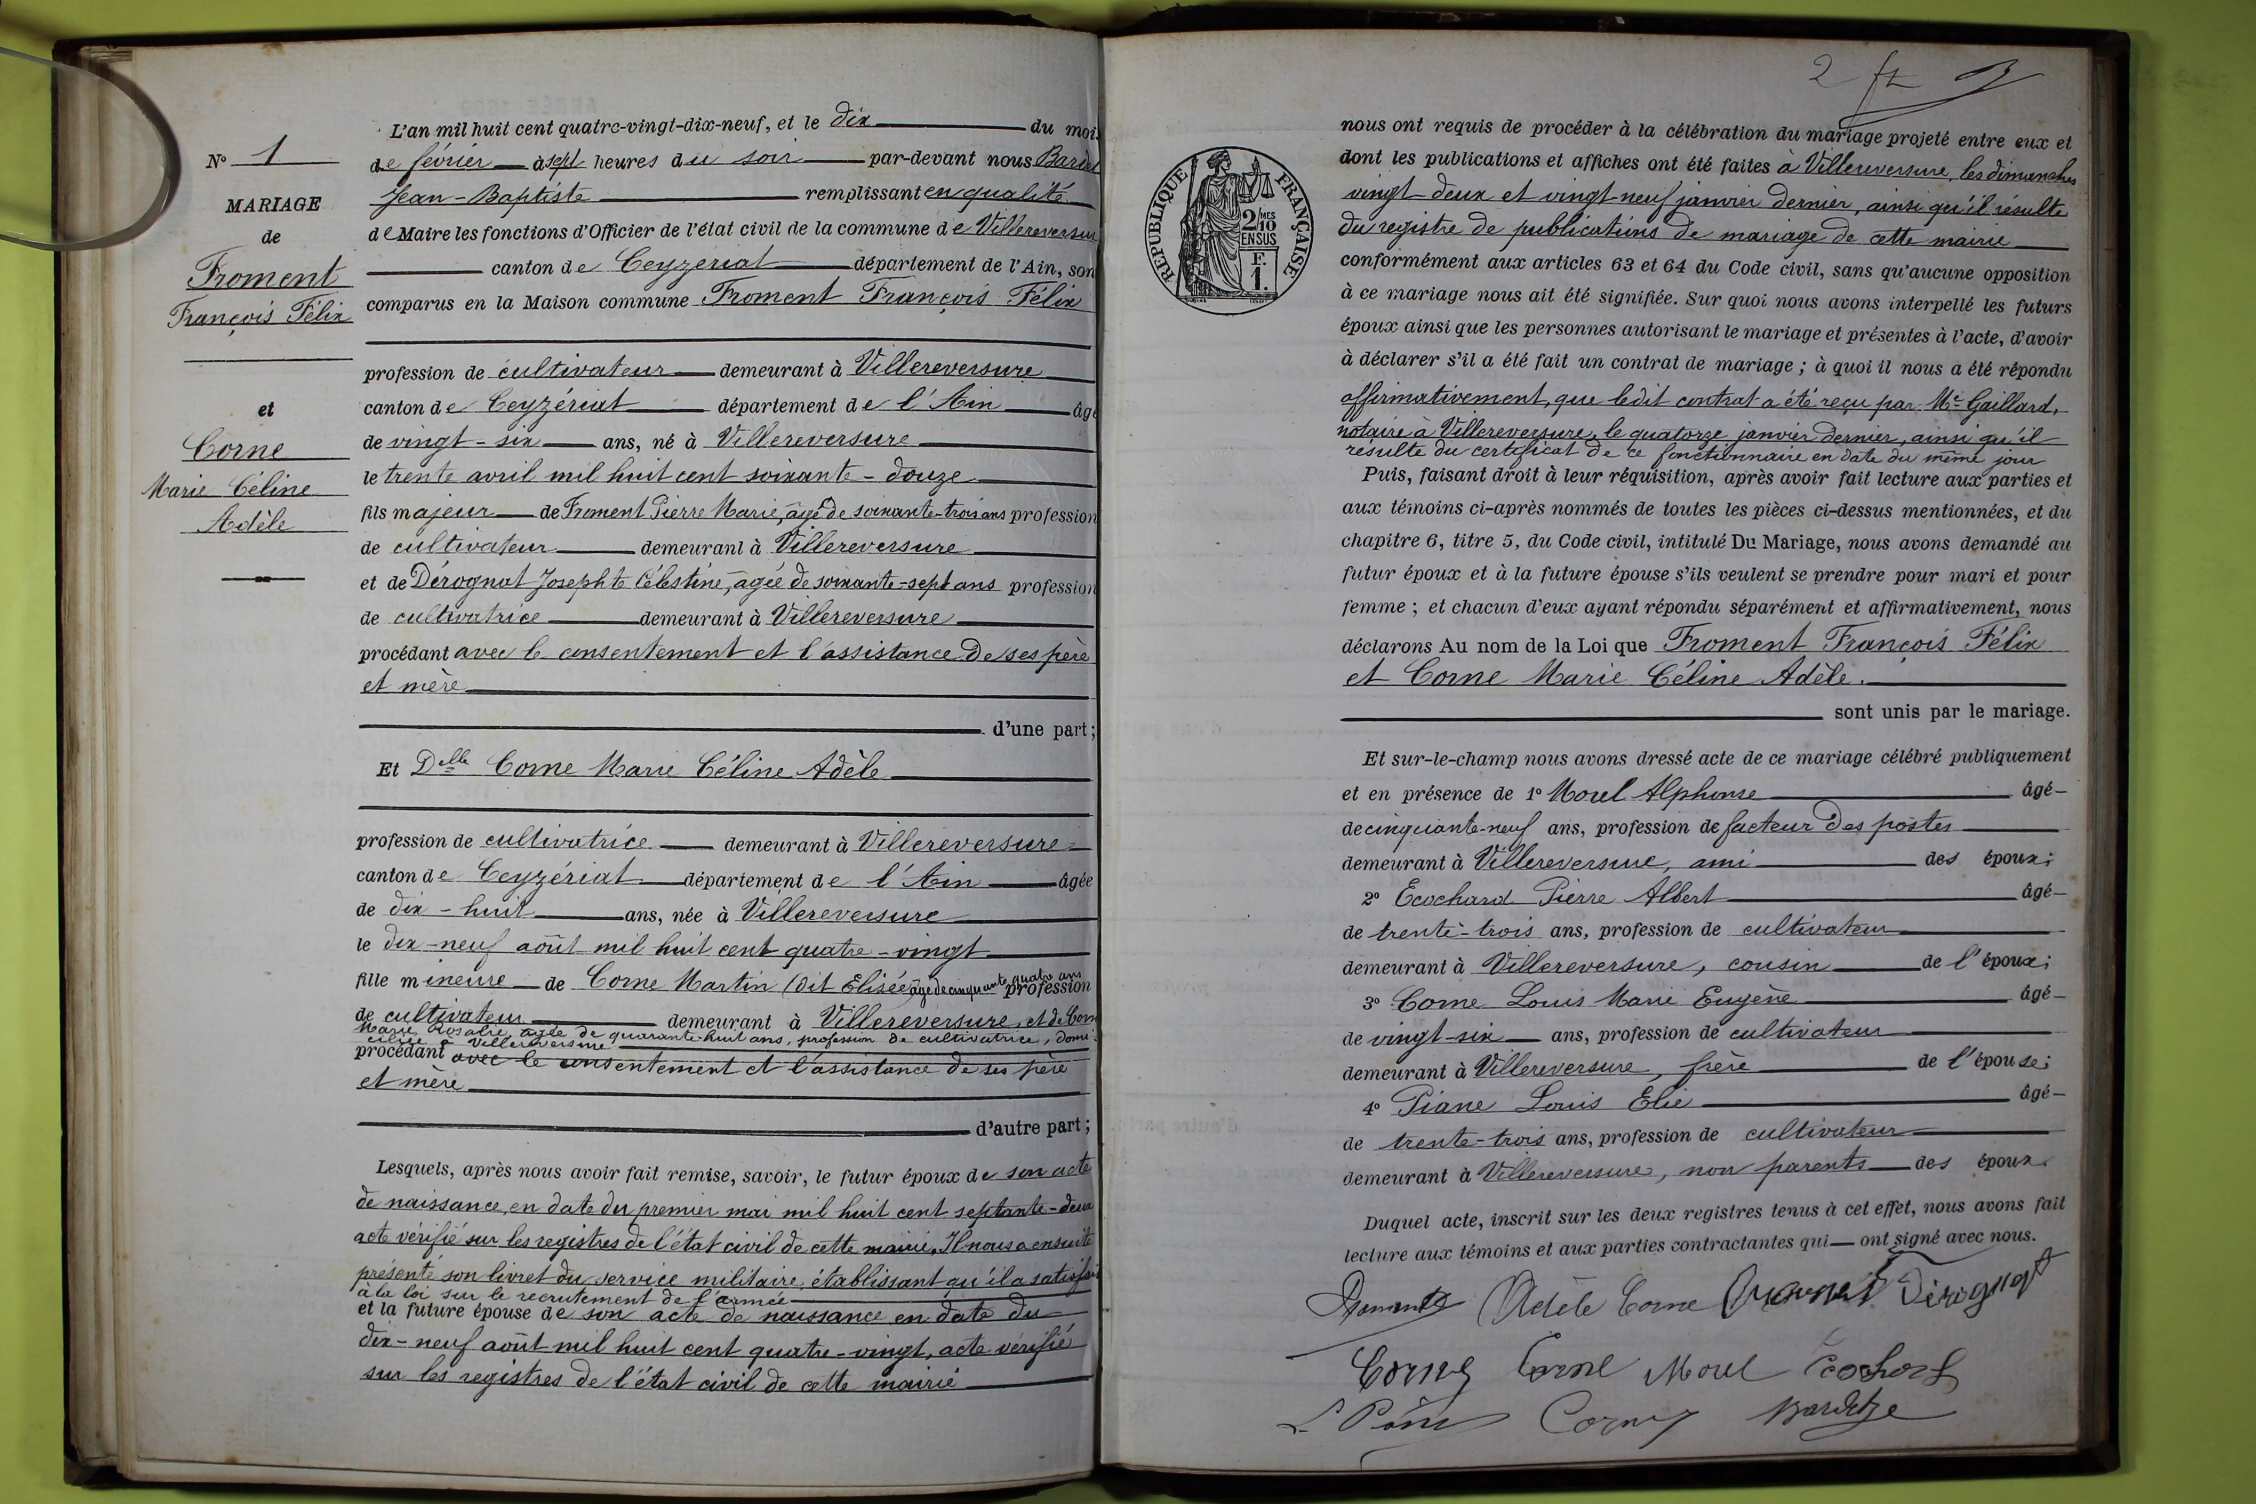 N° 1
MARIAGE
de
Froment
François Félix
et
Corne
Marie Céline
Adèle
L'an mil huit cent quatre-vingt-dix-neuf, et le dix du mois
de février à sept heures du soir par-devant nous
Jean-Baptiste remplissant en qualité
de Maire les fonctions d'Officier de l'état civil de la commune de Villereversure
canton de Ceyzeriat département de l'Ain, son
comparus en la Maison commune Froment François Félix
profession de cultivateur demeurant à Villereversure
canton de Ceyzériat département de l'Ain âgé
de vingt-six ans, né à Villereversure
le trente avril mil huit cent soixante-douze
fils majeur de Froment Pierre Marie, âgé de soixante-trois ans profession
de cultivateur demeurant à Villereversure
et de Dérognat Josephte Célestine, âgée de soixante-sept ans profession
de cultivatrice demeurant à Villereversure
procédant avec le consentement et l'assistance de ses père
et mère
d'une part;
Et Delle Corne Marie Céline Adèle
profession de cultivatrice demeurant à Villereversure
canton de Ceyzériat département de l'Ain âgée
de dix-huit ans, née à Villereversure
le dix-neuf août mil huit cent quatre-vingt
fille mineure de Corne Martin (dit Elisée) âgé de cinquante quatre ans profession
de cultivateur demeurant à Villereversure, et de Corne
Marie Rosalie, âgée de quarante-huit ans, profession de cultivatrice, domi-
ciliée à Villereversure
procédant avec le consentement et l'assistance de ses père
et mère
d'autre part;
Lesquels, après nous avoir fait remise, savoir, le futur époux de son acte
de naissance, en date du premier mai mil huit cent septante-deux
acte vérifié sur les registres de l'état civil de cette mairie. Il nous a ensuite
présenté son livret du service militaire, établissant qu'il a satisfait
à la loi sur le recrutement de l'armée
et la future épouse de son acte de naissance en date du
dix-neuf août mil huit cent quatre-vingt, acte vérifié
sur les registres de l'état civil de cette mairie
2
RÉPUBLIQUE FRANÇAISE
2/10 MES
EN SUS
F.
1.
nous ont requis de procéder à la célébration du mariage projeté entre eux et
dont les publications et affiches ont été faites à Villereversure, les dimanches
vingt-deux et vingt-neuf janvier dernier, ainsi qu'il résulte
du registre de publications de mariage de cette mairie
conformément aux articles 63 et 64 du Code civil, sans qu'aucune opposition
à ce mariage nous ait été signifiée. Sur quoi nous avons interpellé les futurs
époux ainsi que les personnes autorisant le mariage et présentes à l'acte, d'avoir
à déclarer s'il a été fait un contrat de mariage; à quoi il nous a été répondu
affirmativement, que ledit contrat a été reçu par Me Gaillard,
notaire à Villereversure, le quatorze janvier dernier, ainsi qu'il
résulte du certificat de ce fonctionnaire en date du même jour
Puis, faisant droit à leur réquisition, après avoir fait lecture aux parties et
aux témoins ci-après nommés de toutes les pièces ci-dessus mentionnées, et du
chapitre 6, titre 5, du Code civil, intitulé Du Mariage, nous avons demandé au
futur époux et à la future épouse s'ils veulent se prendre pour mari et pour
femme; et chacun d'eux ayant répondu séparément et affirmativement, nous
déclarons Au nom de la Loi que Froment François Félix
et Corne Marie Céline Adèle.
sont unis par le mariage.
Et sur-le-champ nous avons dressé acte de ce mariage célébré publiquement
et en présence de 1° Morel Alphonse âgé
de cinquante-neuf ans, profession de facteur des postes
demeurant à Villereversure, ami des époux;
2° Ecochard Pierre Albert âgé
de trente-trois ans, profession de cultivateur
demeurant à Villereversure, cousin de l'époux;
3° Corne Louis Marie Eugène âgé
de vingt-six ans, profession de cultivateur
demeurant à Villereversure, frère de l'épouse;
4° Piane Louis Elie âgé
de trente-trois ans, profession de cultivateur
demeurant à Villereversure, non parents des époux.
Duquel acte, inscrit sur les deux registres tenus à cet effet, nous avons fait
lecture aux témoins et aux parties contractantes qui ont signé avec nous.
Froment Adèle Corne Froment Dérognat
Corne Corne Morel Ecochard
L Piane Corne